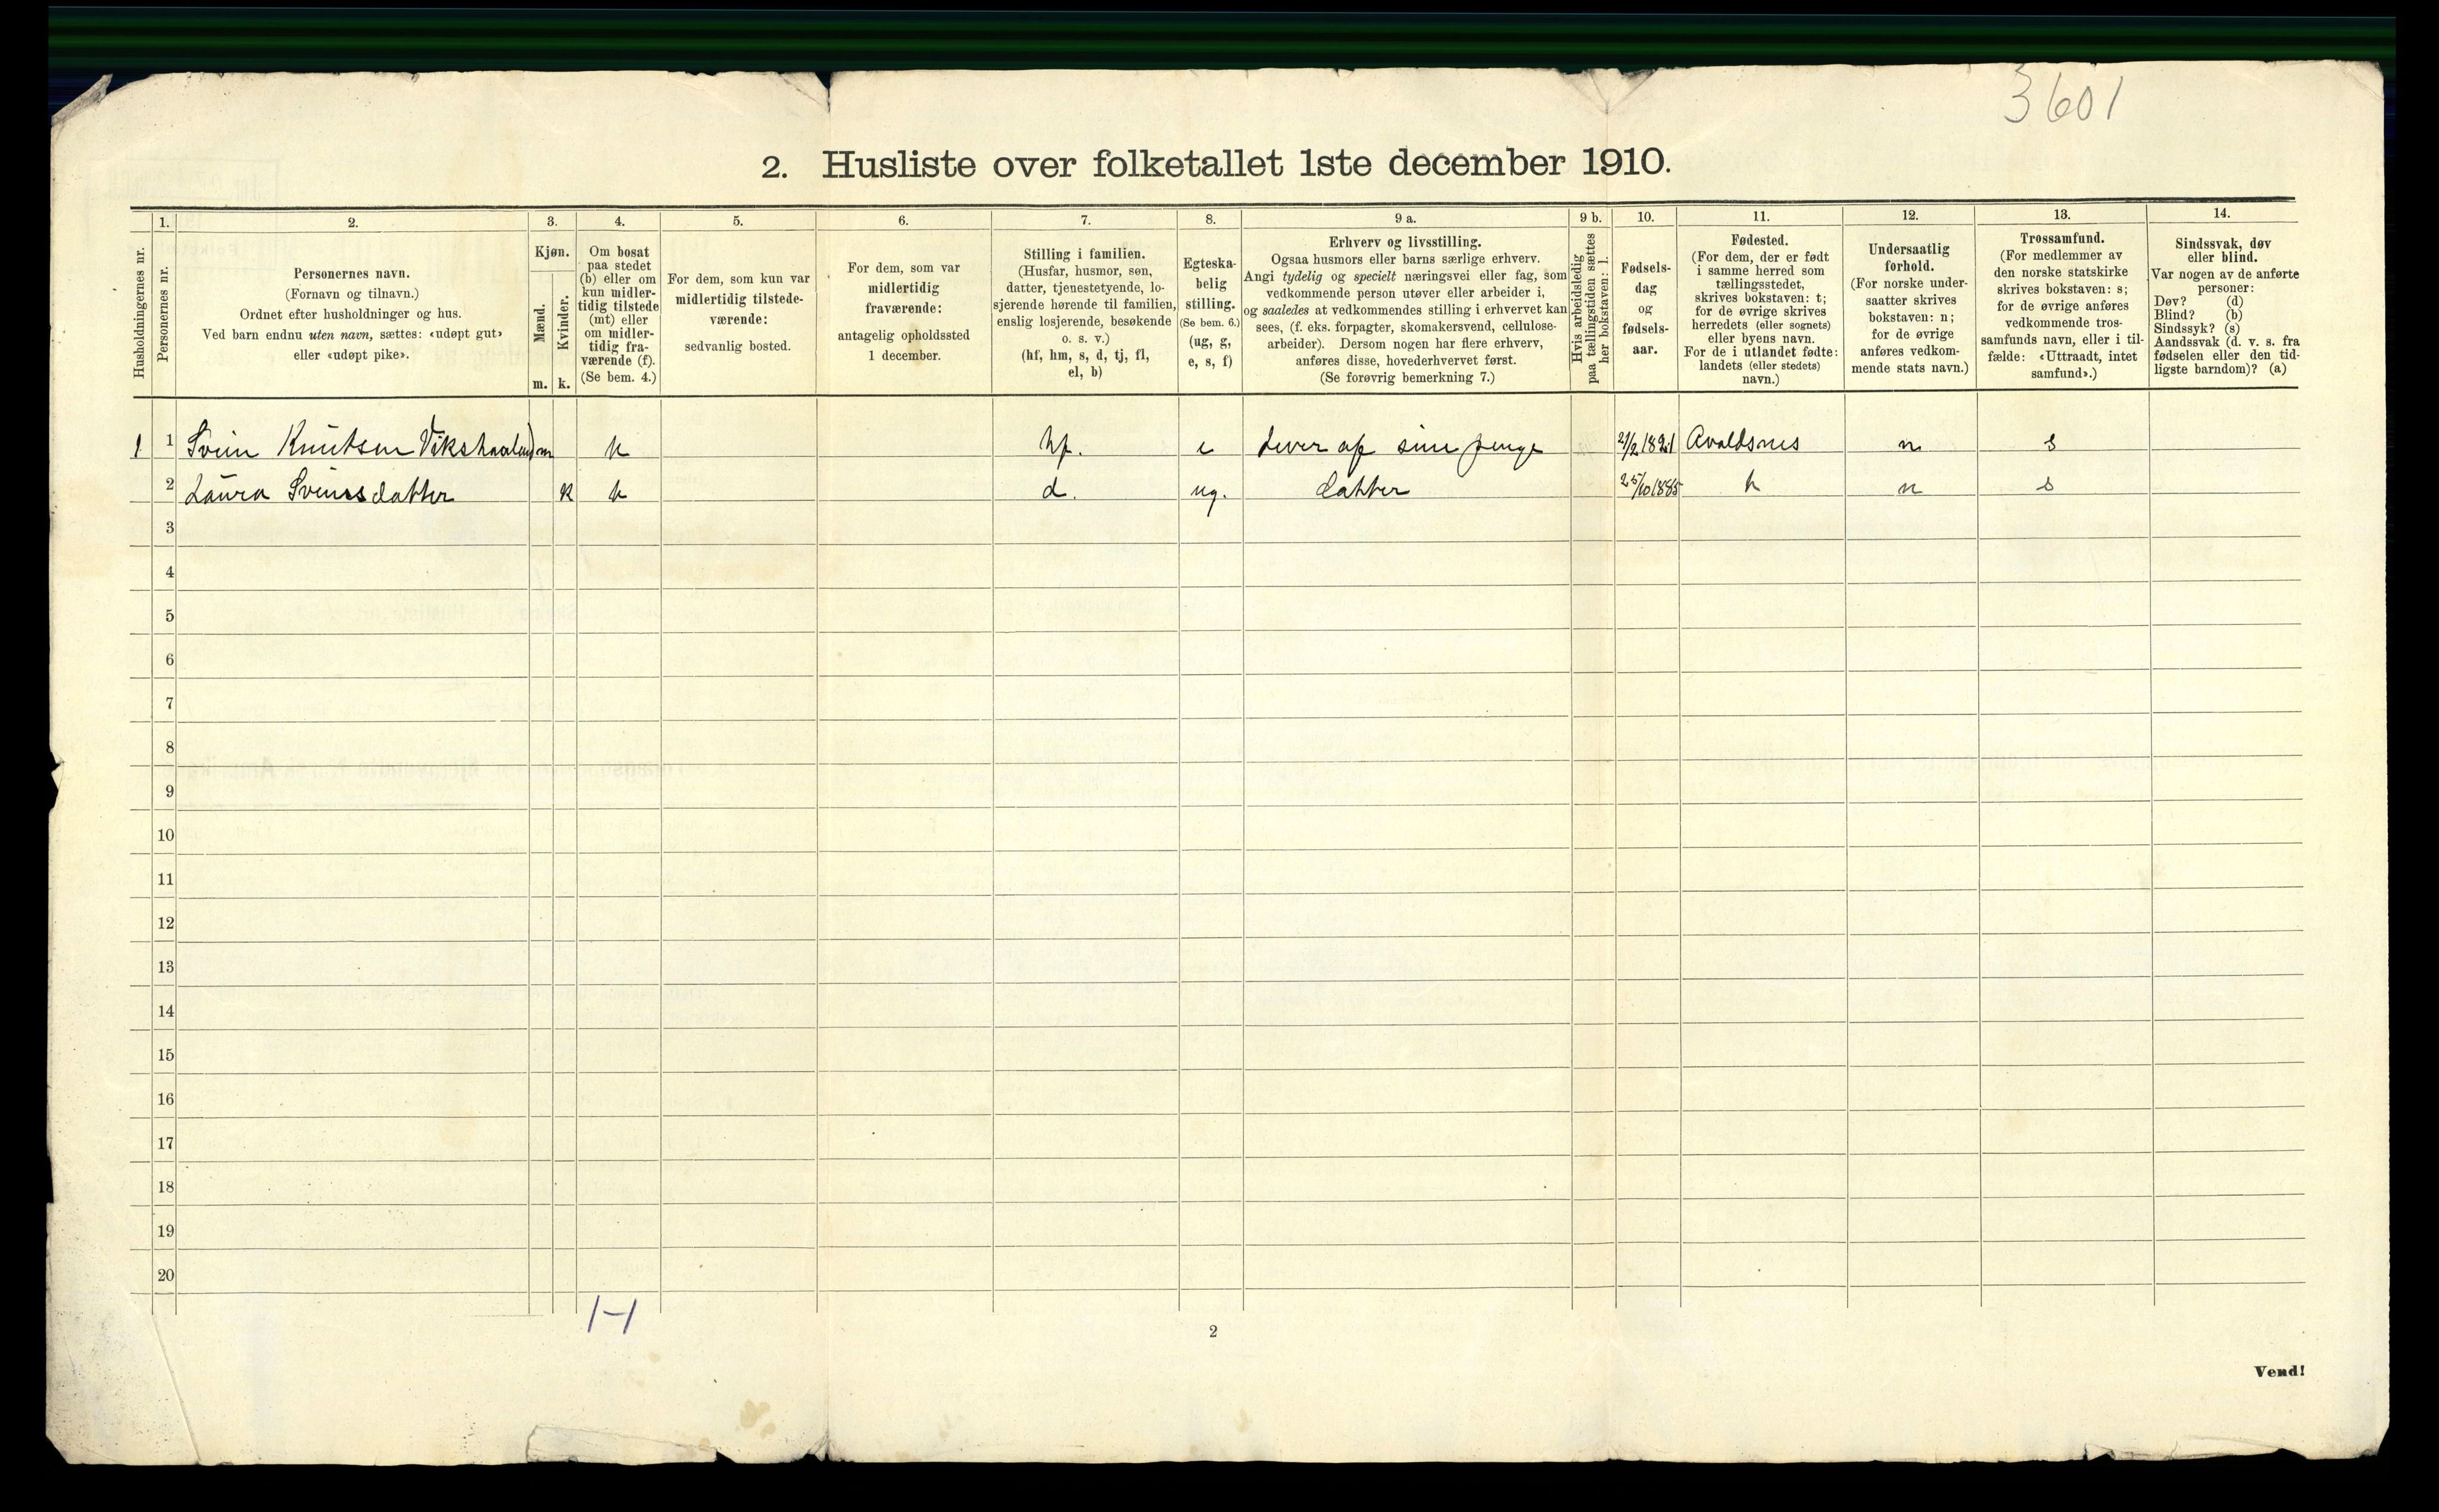 3601
2. Husliste over folketallet 1ste december 1910.
1. 2. 3. 4. 5. 6. 7. 8. 9 a. 9 b. 10. 11. 12. 13. 14.
Husholdningernes nr.
Personernes nr.
Personernes navn.
(Fornavn og tilnavn.)
Ordnet efter husholdninger og hus.
Ved barn endnu uten navn, sættes: «udøpt gut»
eller «udøpt pike».
Kjøn.
Mænd.
Kvinder.
m. k.
Om bosat
paa stedet
(b) eller om
kun midler-
tidig tilstede
(mt) eller
om midler-
tidig fra-
værende (f).
(Se bem. 4.)
For dem, som kun var
midlertidig tilstede-
værende:
sedvanlig bosted.
For dem, som var
midlertidig
fraværende:
antagelig opholdssted
1 december.
Stilling i familien.
(Husfar, husmor, søn,
datter, tjenestetyende, lo-
sjerende hørende til familien,
enslig losjerende, besøkende
o. s. v.)
(hf, hm, s, d, tj, fl,
el, b)
Egteska-
belig
stilling.
(Se bem. 6.)
(ug, g,
e, s, f)
Erhverv og livsstilling.
Ogsaa husmors eller barns særlige erhverv.
Angi tydelig og specielt næringsvei eller fag, som
vedkommende person utøver eller arbeider i,
og saaledes at vedkommendes stilling i erhvervet kan
sees, (f. eks. forpagter, skomakersvend, cellulose-
arbeider). Dersom nogen har flere erhverv,
anføres disse, hovederhvervet først.
(Se forøvrig bemerkning 7.)
Hvis arbeidsledig
paa tællingstiden sættes
her bokstaven: l.
Fødsels-
dag
og
fødsels-
aar.
Fødested.
(For dem, der er født
i samme herred som
tællingsstedet,
skrives bokstaven: t;
for de øvrige skrives
herredets (eller sognets)
eller byens navn.
For de i utlandet fødte:
landets (eller stedets)
navn.)
Undersaatlig
forhold.
(For norske under-
saatter skrives
bokstaven: n;
for de øvrige
anføres vedkom-
mende stats navn.)
Trossamfund.
(For medlemmer av
den norske statskirke
skrives bokstaven: s;
for de øvrige anføres
vedkommende tros-
samfunds navn, eller i til-
fælde: «Uttraadt, intet
samfund».)
Sindssvak, døv
eller blind.
Var nogen av de anførte
personer:
Døv? (d)
Blind? (b)
Sindssyk? (s)
Aandssvak (d. v. s. fra
fødselen eller den tid-
ligste barndom)? (a)
1 1 Svein Knutsen Vikshaaland m hf. e Lever af sine penge Avaldsnes n s
2 Laura Sveinsdatter k d. ug. datter 25/10 1885 n s
3
4
5
6
7
8
9
10
11
12
13
14
15
16
17
18
19
20
1-1
2
Vend!